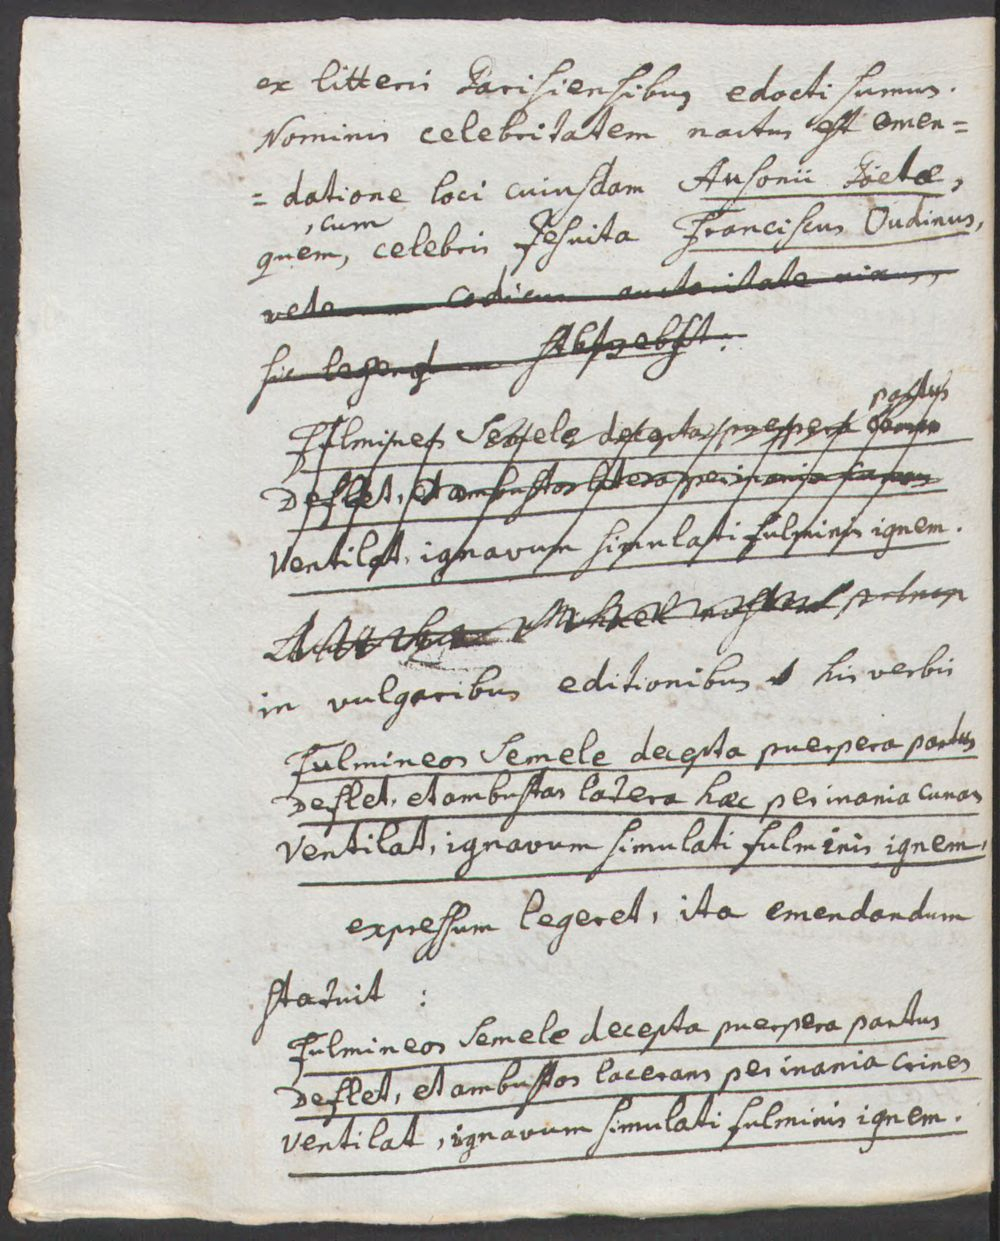 ex litteris Parisiensibus edocti sumus.
Nominis celebritatem nactus est emen=
=datione loci cuiusdam Ausonii Poetæ,
, cum
quem, celebris Jesuita Franciscus Oudinus,
codicum auctoritate
sic
partus
Fulmineos Semele decepta puerpera
Deflet, et ambustos latera per inania
Ventilat, ignavum simulati fulminis ignem.
in vulgaribus editionibus his verbis
Fulmineos Semele decepta puerpera partus
Deflet, et ambustas latera hæc per inania cunas
Ventilat, ignavum simulati fulminis ignem,
expressum legeret, ita emendandum
statuit :
Fulmineos Semele decepta puerpera partus
Deflet, et ambustos lacerans per inania crines
Ventilat, ignavum simulati fulminis ignem.